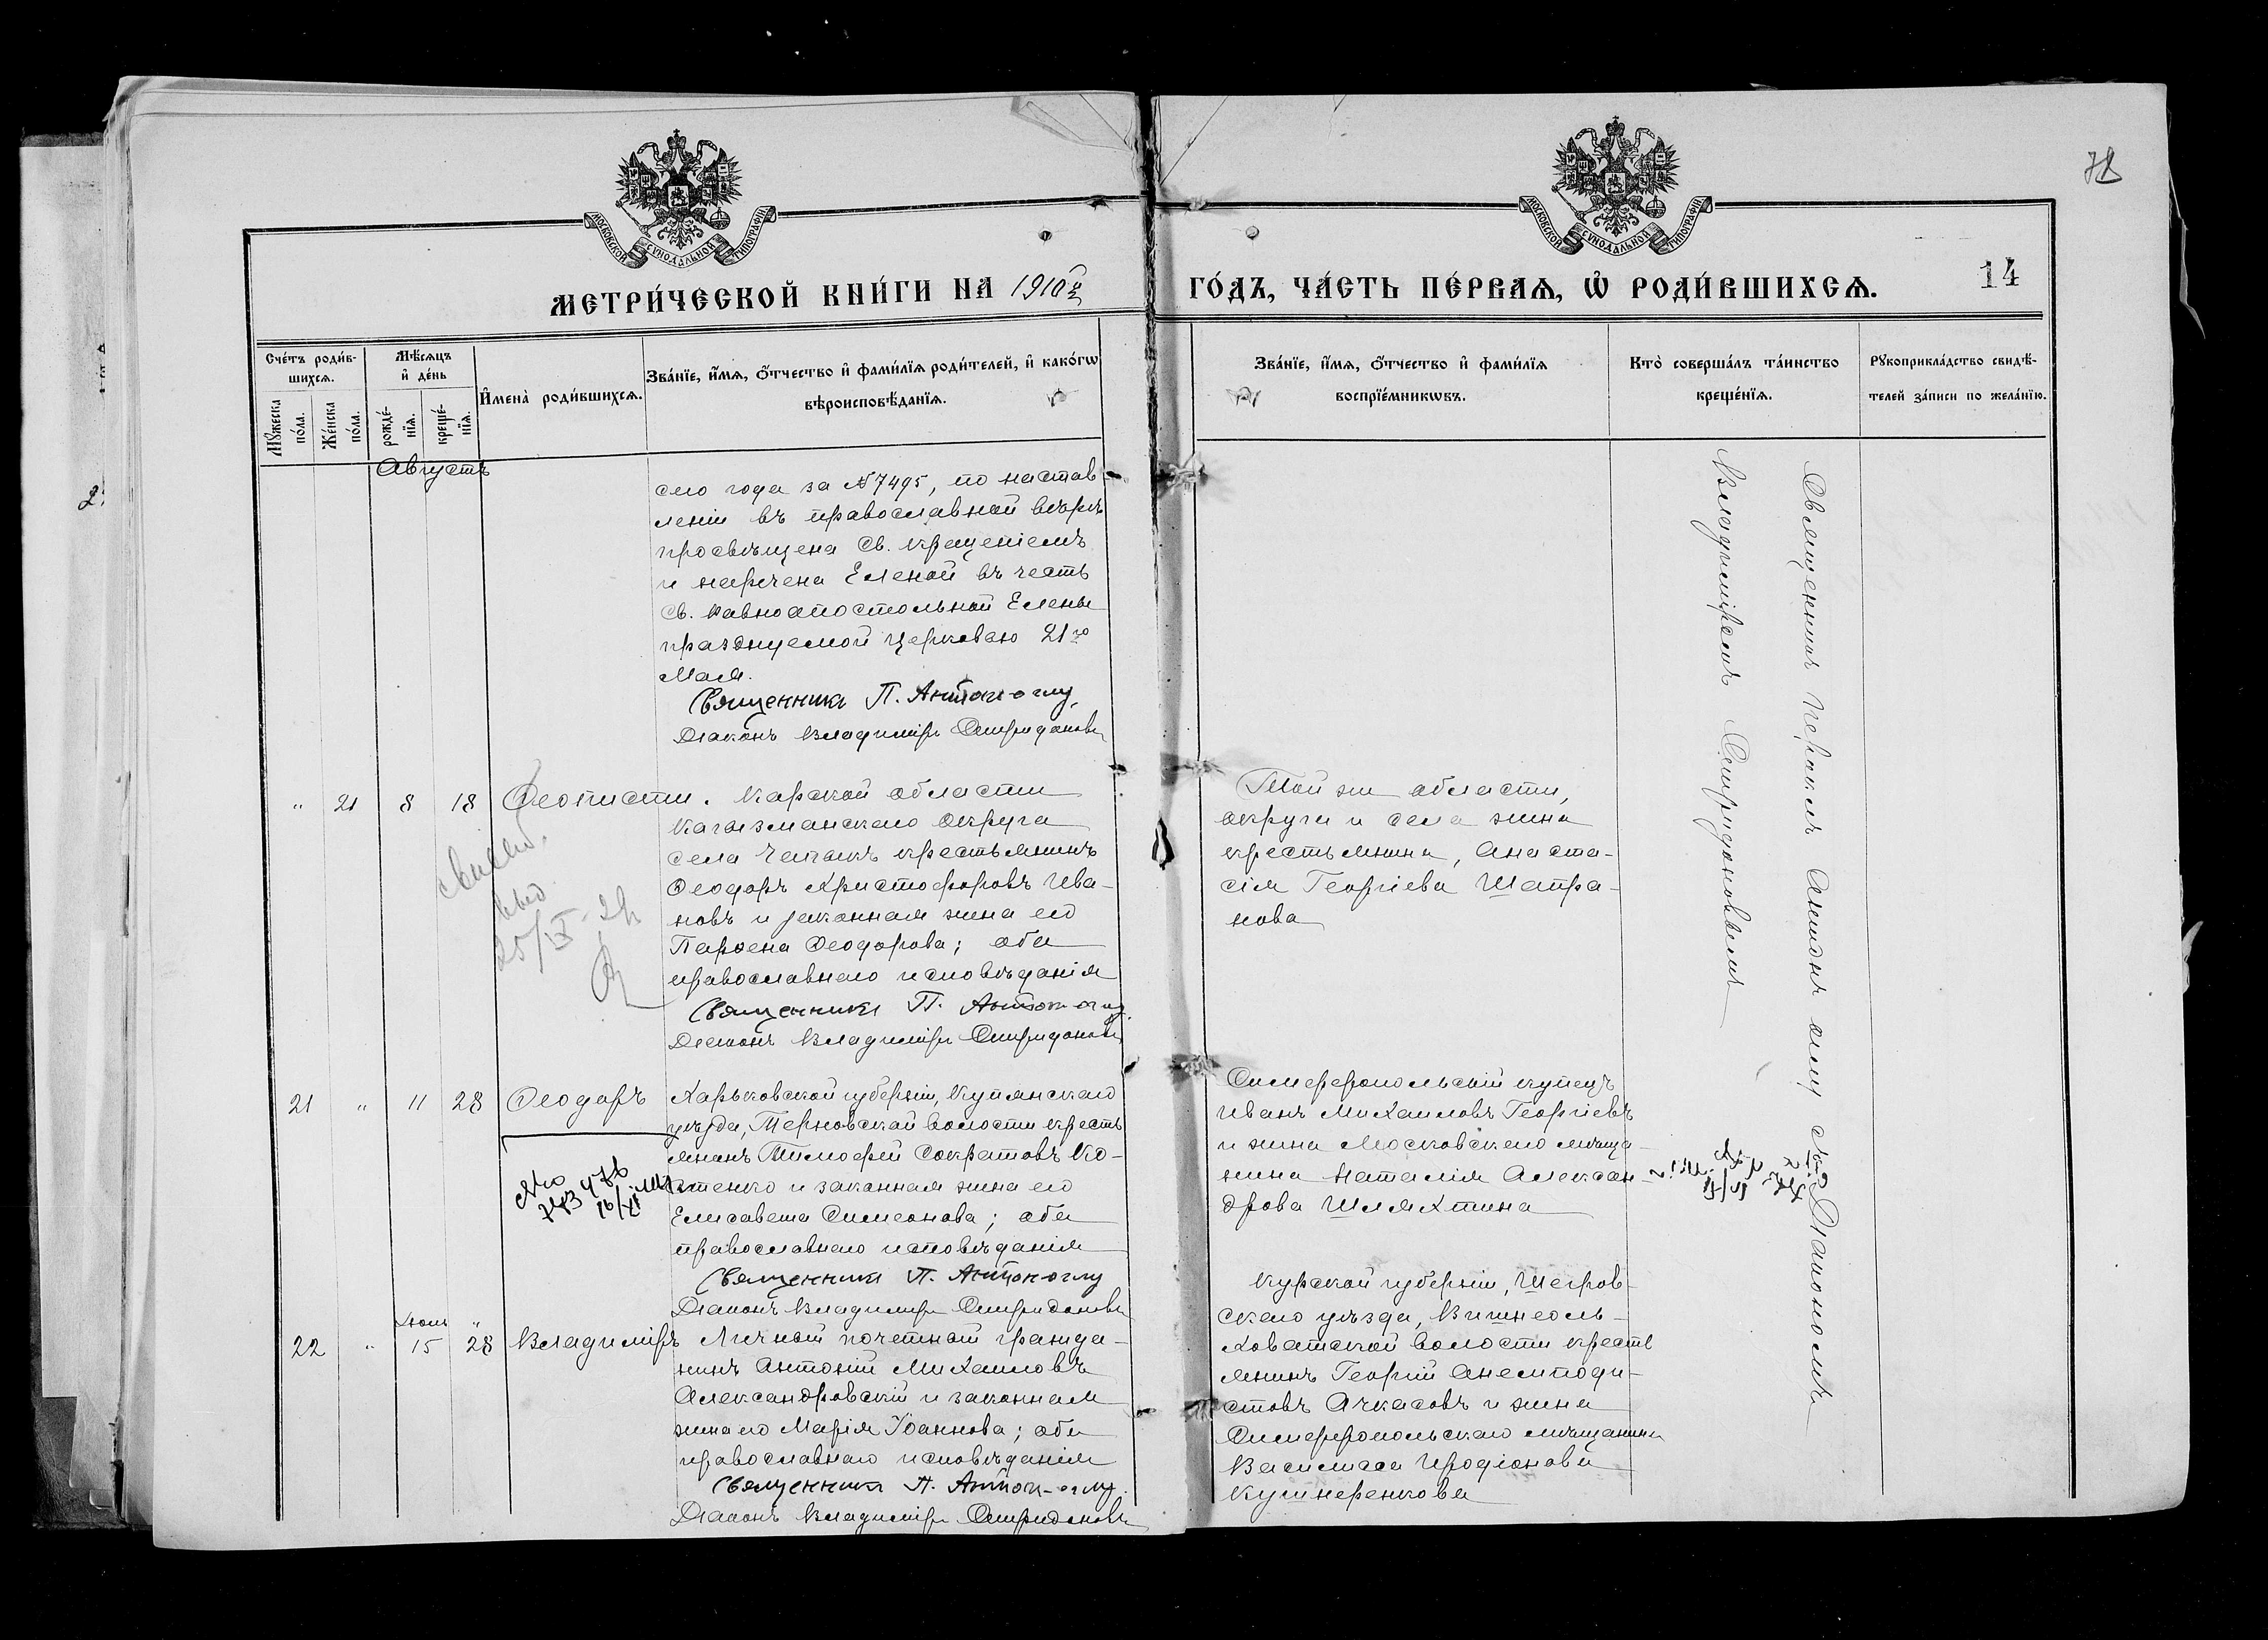 78
МОСКОВСКОЙ СѴНОДАЛЬНОЙ ТИПОГРАФІИ
МОСКОВСКОЙ СѴНОДАЛЬНОЙ ТИПОГРАФІИ
МЕТРИ́ЧЕСКОЙ КНИ́ГИ НА 1910й
ГО́ДЪ, ЧА́СТЬ ПЕ́РВАЯ, Ѡ РОДИ́ВШИХСЯ.
14
Сче́тъ роди́в-
шихся.
Мꙋ́жеска по́ла.
Же́нска по́ла.
Мѣ́сяцъ
и де́нь
рожде́-
нїя.
креще́-
нїя.
Имена̀ роди́вшихся.
Зва́нїе, и́мя, о́тчество и фами́лїя роди́телей, и како́гѡ
вѣроисповѣ́данїя.
Зва́нїе, и́мя, о́тчество и фами́лїя
воспрїе́мникѡвъ.
Кто̀ соверша́лъ та́инство
креще́нїя.
Рꙋкоприкла́дство свидѣ́-
телей за́писи по жела́нїю.
Августъ
сего года за №7495, по настав-
леніи въ православной вѣрѣ
просвѣщена Св. крещеніемъ
и наречена Еленой въ честь
Св. Равноапостольной Елены
празднуемой церковью 21го
Мая.
Священникъ П. Антон-оглу
Діаконъ Владиміръ Спиридоновъ
" 21 8 18 Феописти.
Карской области
Кагызманскаго округа
села Чепикъ крестьянинъ
Феодоръ Христофоровъ Ива-
новъ и законная жена его
Парѳена Феодорова; оба
православнаго исповѣданія
Священникъ П. Антон-оглу
Діаконъ Владиміръ Спиридоновъ
Той же области,
округа и села жена
крестьянина, Анаста-
сія Георгіева Шапра-
нова
21 " 11 28 Феодоръ
Харьковской губерніи, Купянскаго
уѣзда, Терновской волости кресть
янинъ Тимофей Сократовъ Ко-
стенко и законная жена его
Елисавета Симеонова; оба
православнаго исповѣданія
Священникъ П. Антон-оглу
Діаконъ Владиміръ Спиридоновъ
Симферопольскій купецъ
Иванъ Михаиловъ Георгіевъ
и жена Московскаго мѣща-
нина Наталія Алексан-
дрова Шляхтина
Іюнь "
22 " 15 28 Владиміръ
Личный почетный гражда-
нинъ Антоній Михаиловъ
Александровскій и законная
жена его Марія Іоаннова; оба
православнаго исповѣданія
Священникъ П. Антон-оглу
Діаконъ Владиміръ Спиридоновъ
Курской губерніи, Щигров-
скаго уѣзда, Вишнеоль-
ховатской волости кресть
янинъ Георгій Анемподи-
стовъ Ачкасовъ и жена
Симферопольскаго мѣщанина
Василиса Иродіонова
Кушнеренкова
Священникъ Периклъ Антонъ оглу съ Діакономъ
Владиміромъ Спиридоновымъ